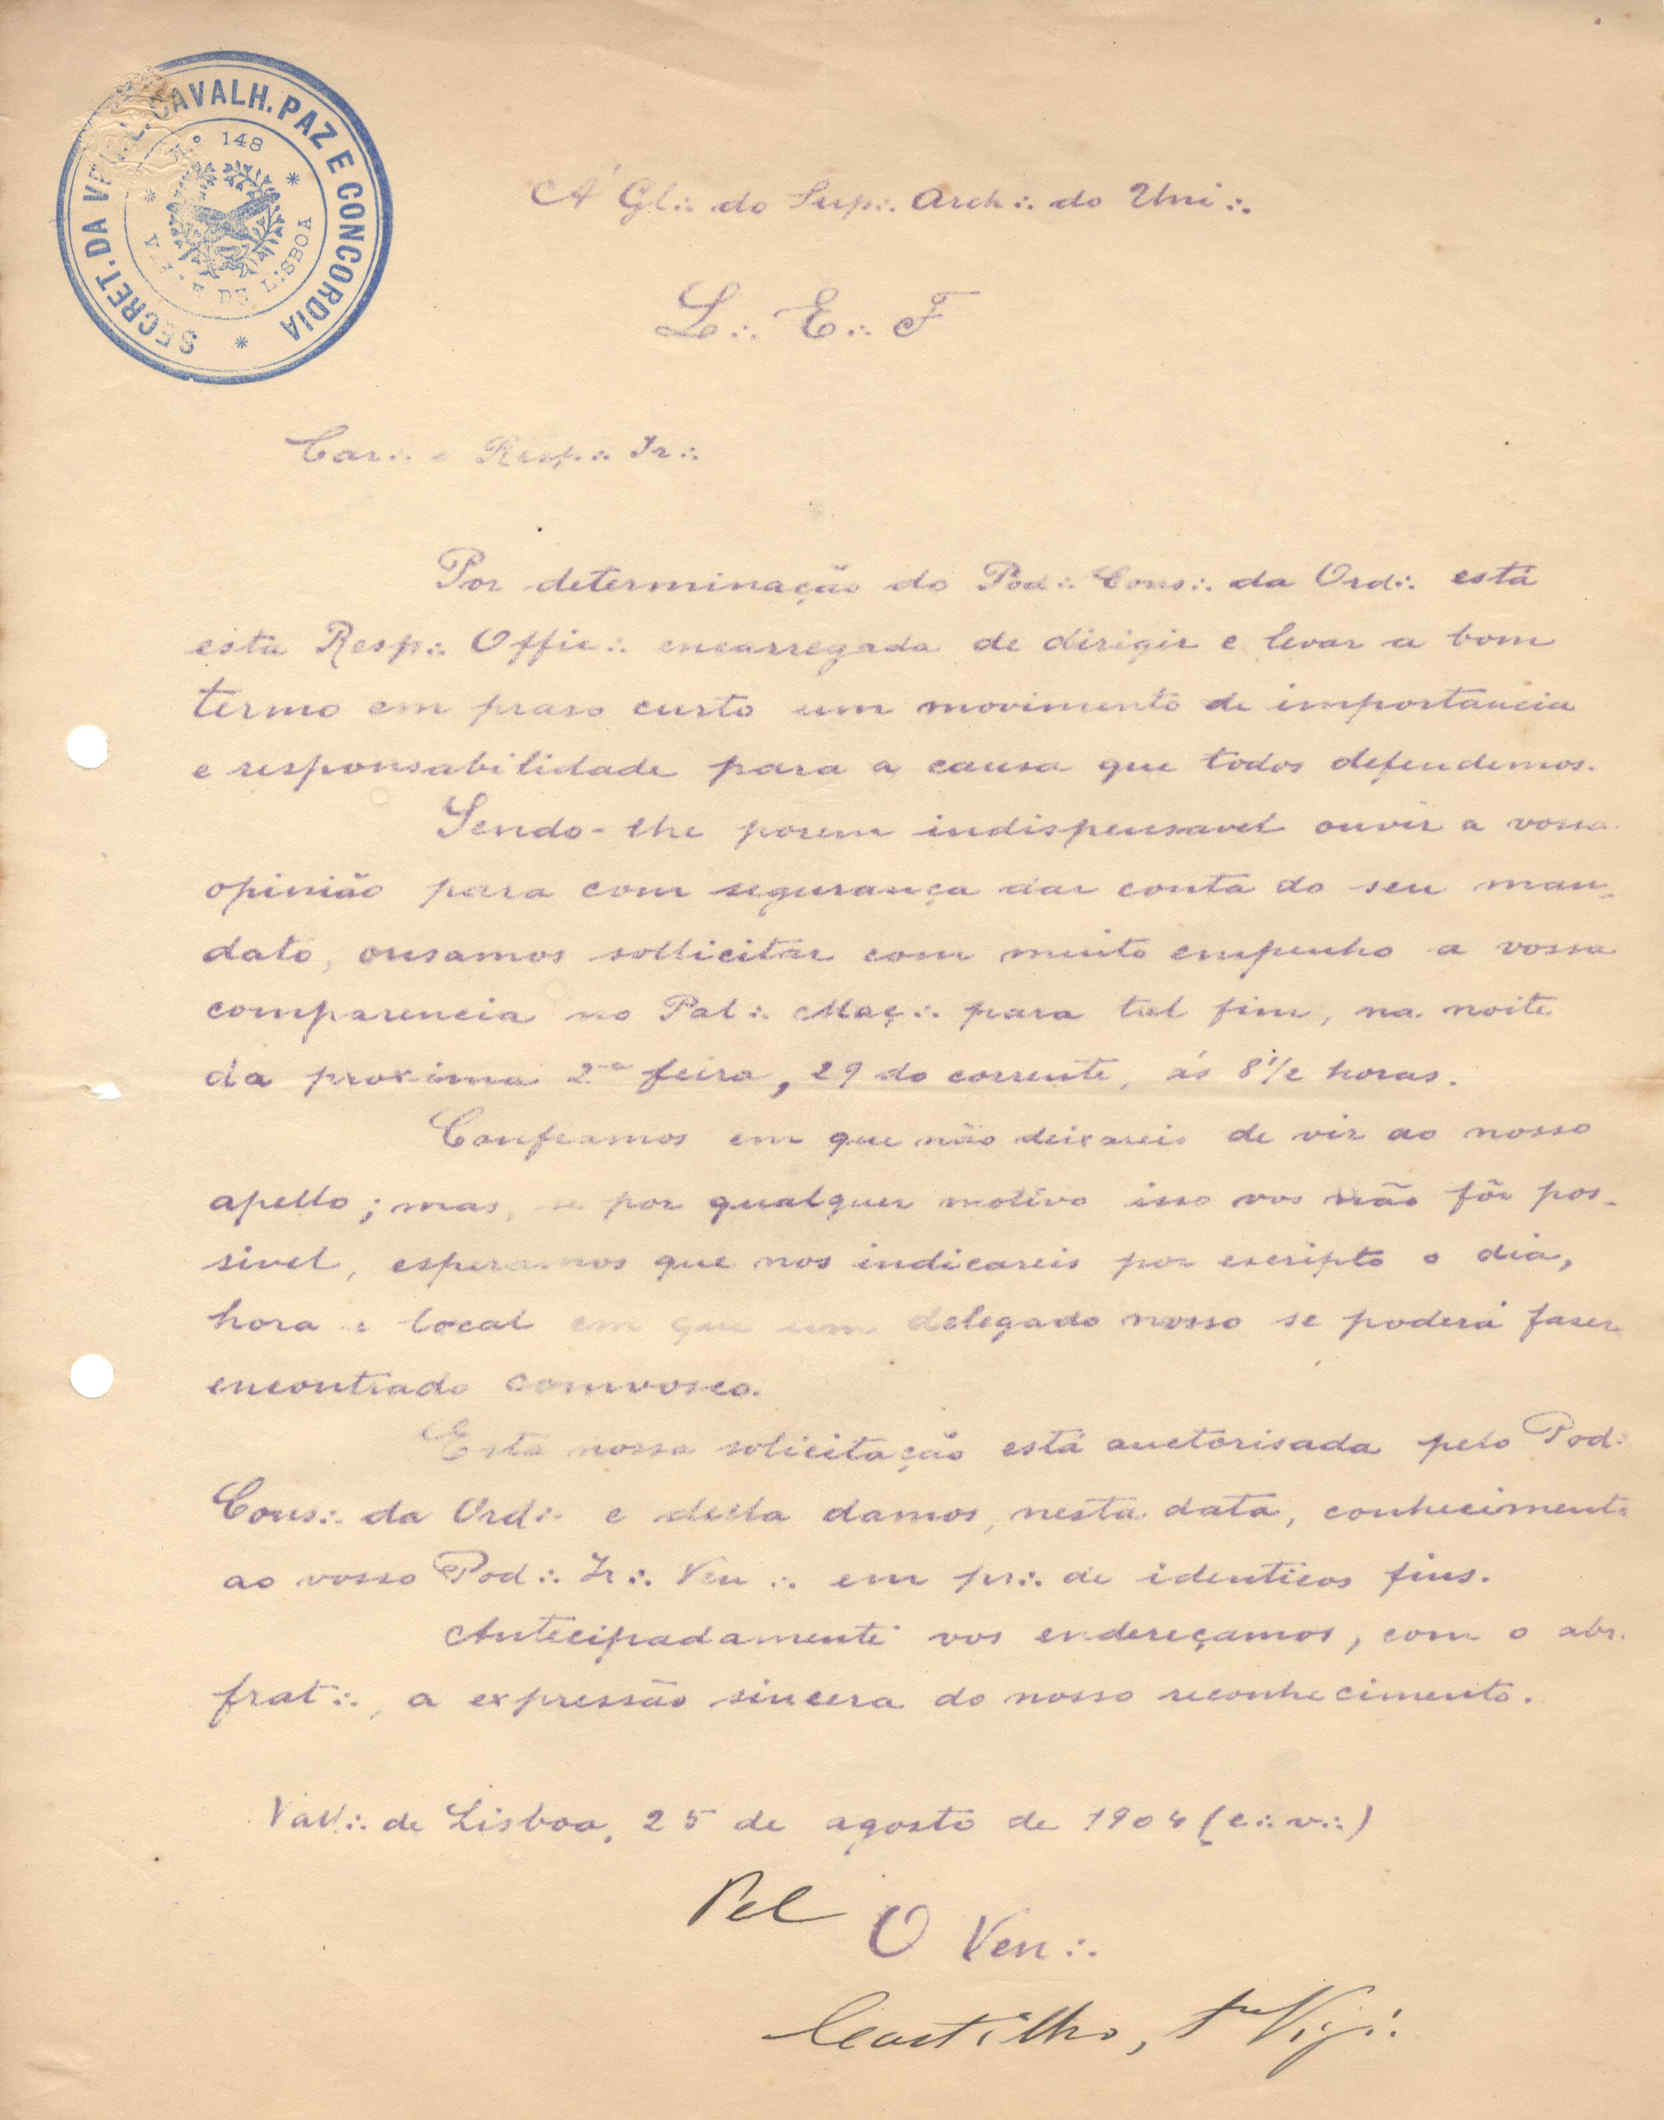 SECRET. DA VEN. L. CAVALH. PAZ E CONCORDIA
N.º 148
VALLE DE LISBOA
A' Gl∴ do Sup∴ Arch∴ do Uni∴
L∴ E∴ F
Car∴ e Resp∴ Ir∴
Por determinação do Pod∴ Cons∴ da Ord∴ está
esta Resp∴ Offic∴ encarregada de dirigir e levar a bom
termo em praso curto um movimento de importancia
e responsabilidade para a causa que todos defendemos.
Sendo-lhe porem indispensavel ouvir a vossa
opinião para com segurança dar conta do seu man-
dato, ousamos sollicitar com muito empenho a vossa
comparencia no Pal∴ Maç∴ para tal fim, na noite
da proxima 2ª feira, 29 do corrente, ás 8 1/2 horas.
Confiamos em que não deixareis de vir ao nosso
apello; mas, se por qualquer motivo isso vos não fôr pos-
sivel, esperamos que nos indicareis por escripto o dia,
hora e local em que um delegado nosso se poderá faser
encontrado comvosco.
Esta nossa solicitação está auctorisada pelo Pod∴
Cons∴ da Ord∴ e della damos, nesta data, conhecimento
ao vosso Pod∴ Ir∴ Ven∴ em pr∴ de identicos fins.
Antecipadamente vos endereçamos, com o abr.
frat∴, a expressão sincera do nosso reconhecimento.
Vall∴ de Lisboa, 25 de agosto de 1904 (e∴ v∴)
Pel O Ven∴
Castilho, 1º Vig∴